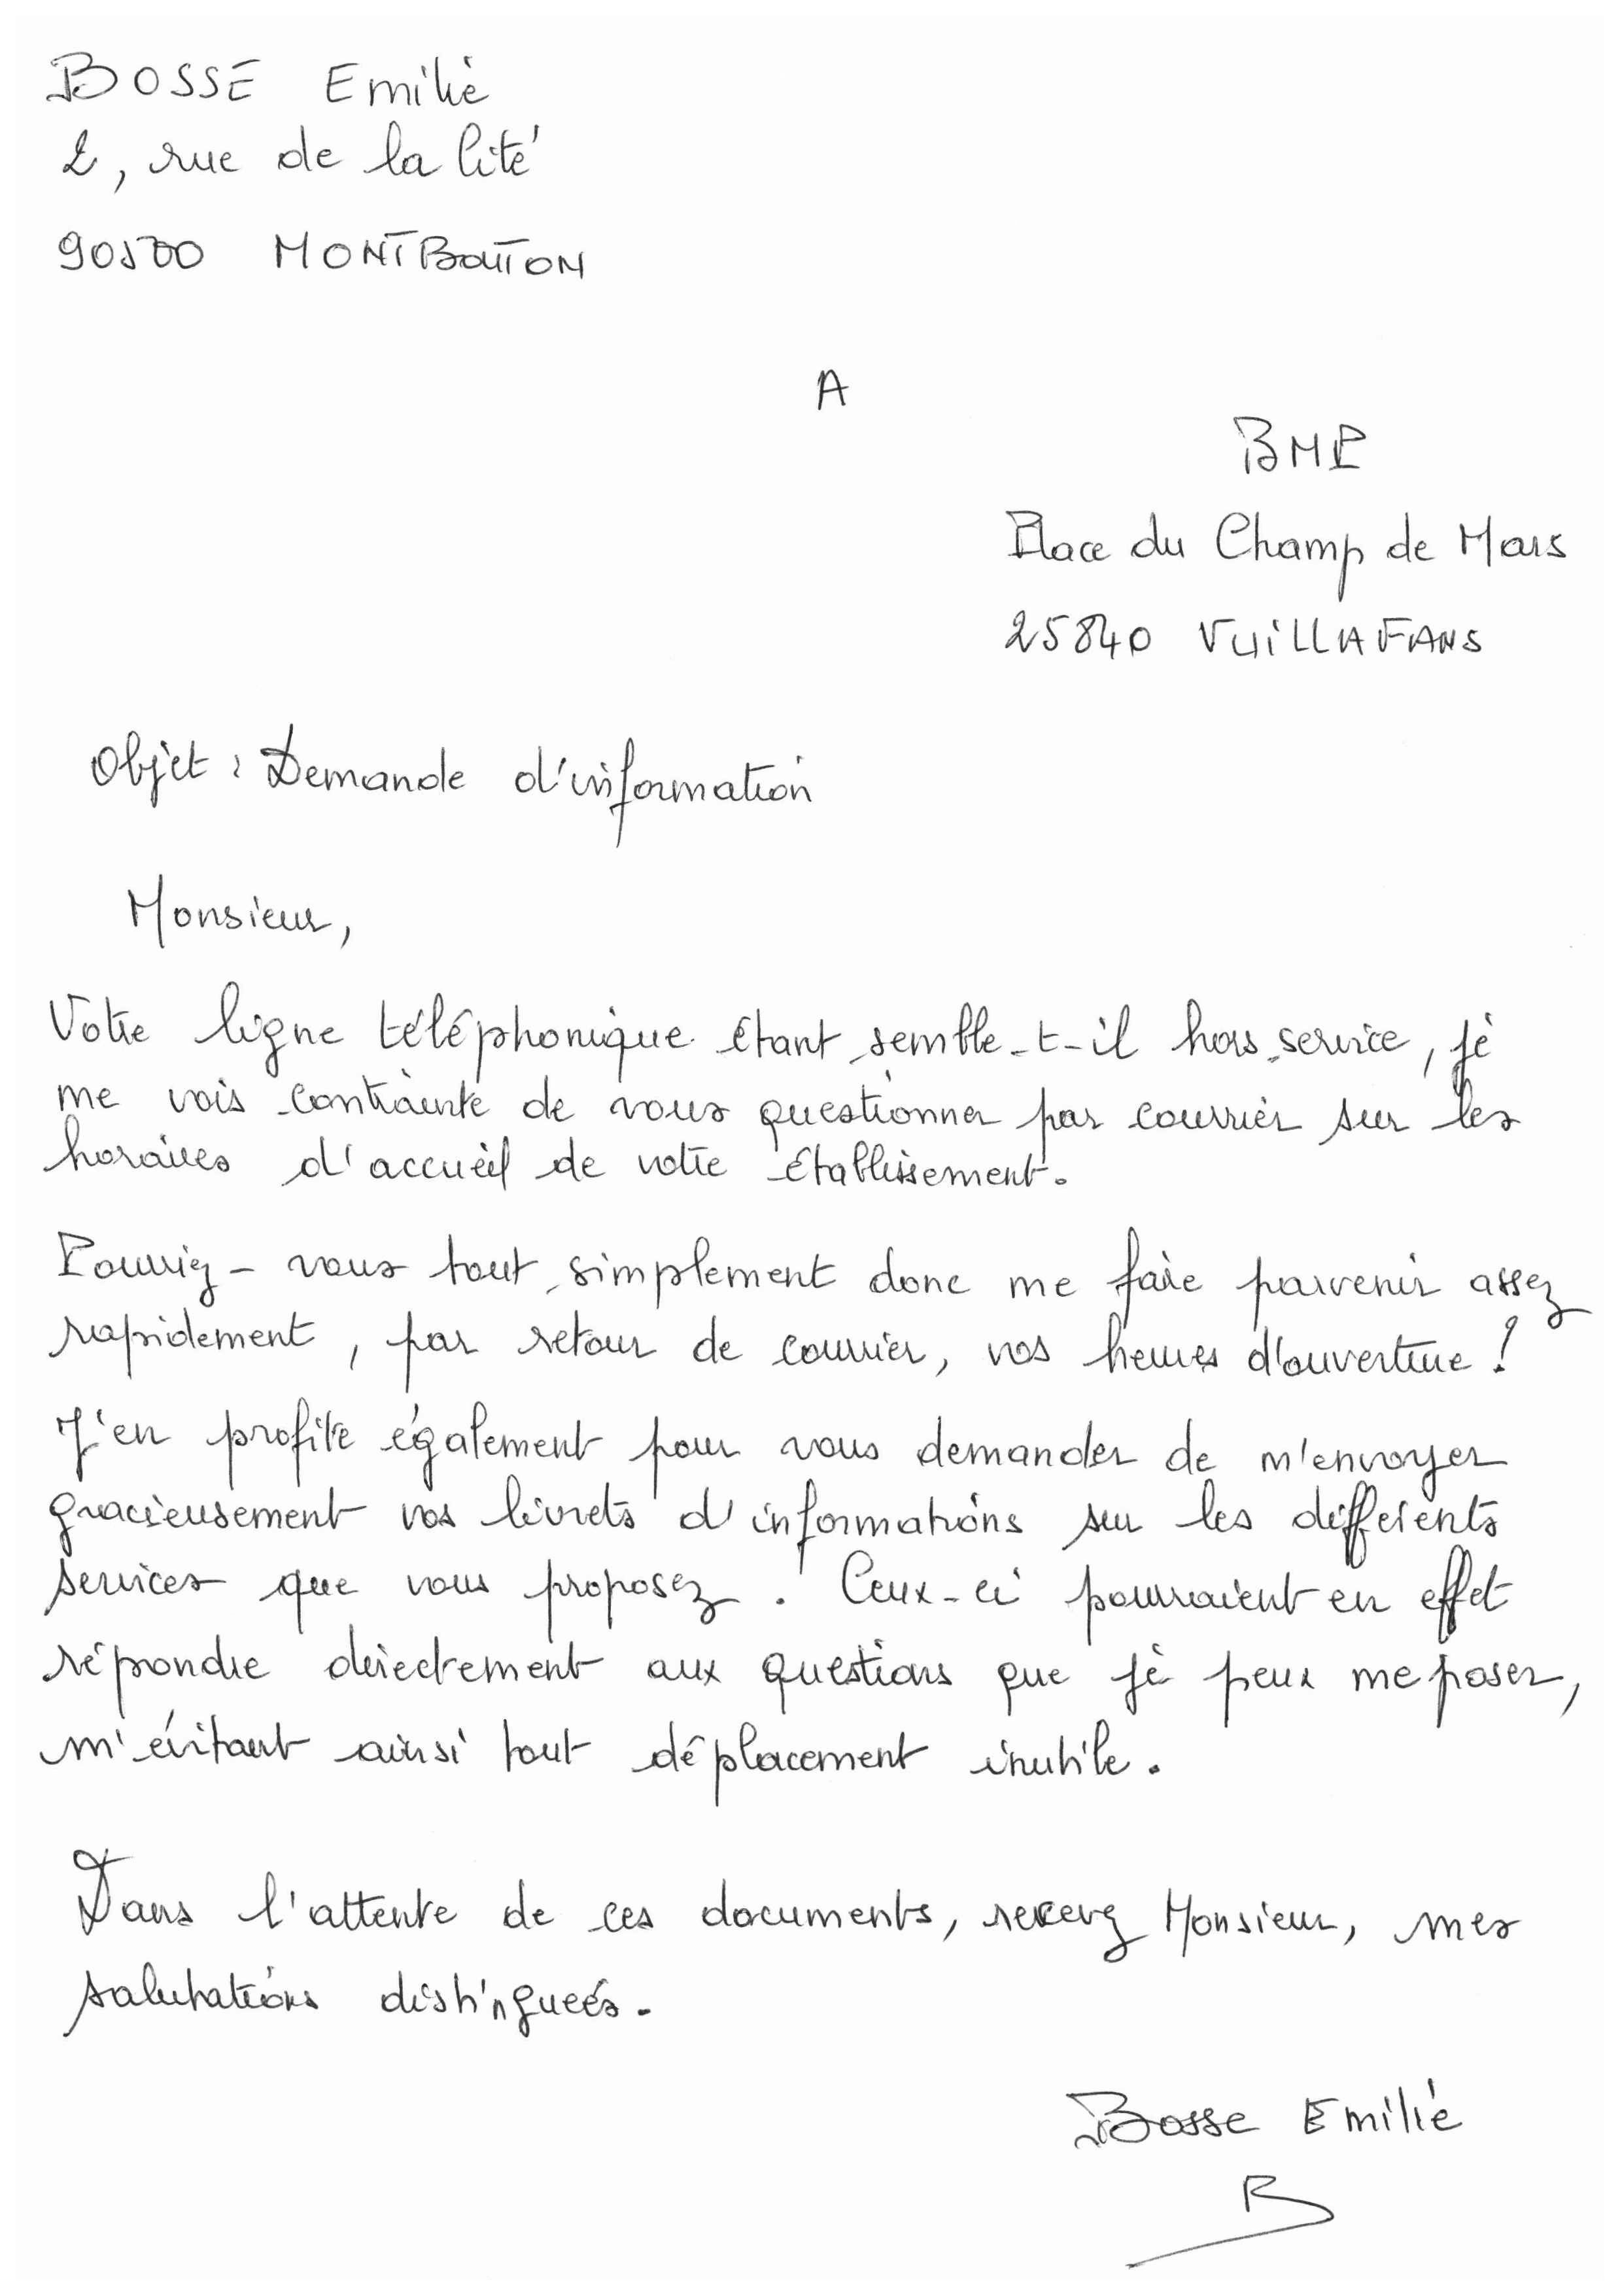 BOSSE Emilie
2, rue de la Cité
90500 MONTBOUTON
A
BMP
Place du Champ de Mars
25840 VUILLAFANS
Objet : Demande d'information
Monsieur,
Votre ligne téléphonique étant semble-t-il hors service, je
me vois contrainte de vous questionner par courrier sur les
horaires d'accueil de votre établissement.
Pourriez-vous tout simplement donc me faire parvenir assez
rapidement, par retour de courrier, vos heures d'ouverture !
J'en profite également pour vous demander de m'envoyer
gracieusement vos livrets d'informations sur les différents
services que vous proposez. Ceux-ci pourraient en effet
répondre directement aux questions que je peux me poser,
m'évitant ainsi tout déplacement inutile.
Dans l'attente de ces documents, recevez Monsieur, mes
salutations distinguées.
Bosse Emilie
B